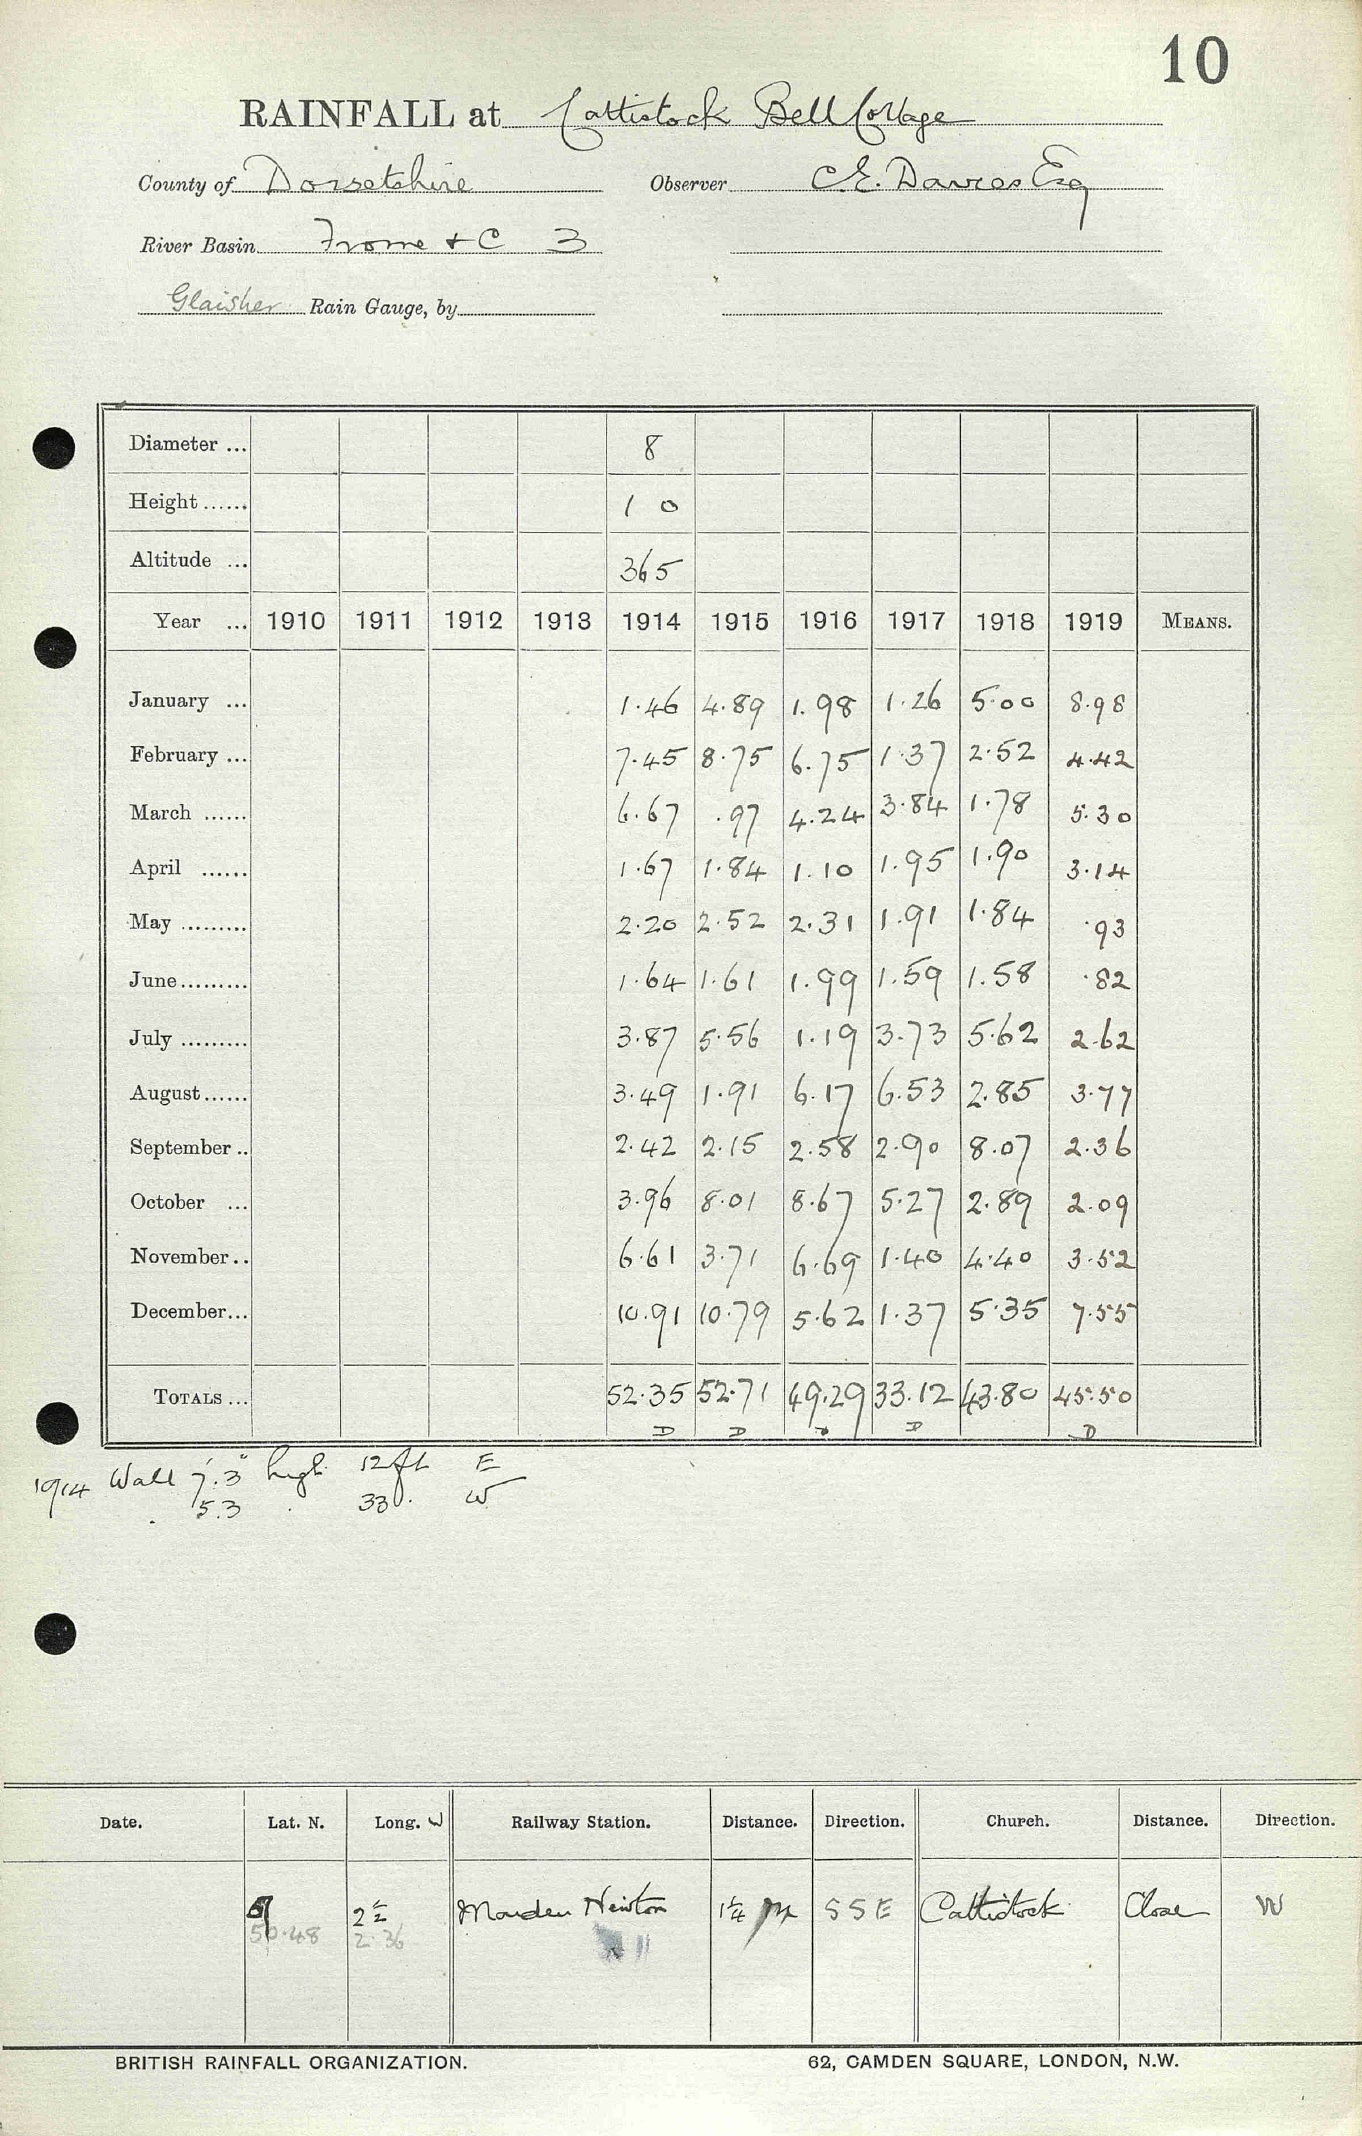 10
RAINFALL at Cattistock Bell Cottage
County of Dorsetshire Observer C.E. Davies Esq
River Basin Frome & C 3
Glaisher Rain Gauge, by
Diameter ... 8
Height ...... 1 0
Altitude ... 365
Year ... 1910 1911 1912 1913 1914 1915 1916 1917 1918 1919 MEANS.
January ... 1.46 4.89 1.98 1.26 5.00 8.98
February ... 7.45 8.75 6.75 1.37 2.52 4.42
March ...... 6.67 .97 4.24 3.84 1.78 5.30
April ...... 1.67 1.84 1.10 1.95 1.90 3.14
May ......... 2.20 2.52 2.31 1.91 1.84 .93
June ......... 1.64 1.61 1.99 1.59 1.58 .82
July ......... 3.87 5.56 1.19 3.73 5.62 2.62
August ...... 3.49 1.91 6.17 6.53 2.85 3.77
September .. 2.42 2.15 2.58 2.90 8.07 2.36
October ... 3.96 8.01 8.67 5.27 2.89 2.09
November .. 6.61 3.71 6.69 1.40 4.40 3.52
December ... 10.91 10.79 5.62 1.37 5.35 7.55
TOTALS ... 52.35 52.71 49.29 33.12 43.80 45.50
D D D D D
1914 Wall 7'.3" high 12ft E
5.3 33 W
Date. Lat. N. Long. W Railway Station. Distance. Direction. Church. Distance. Direction.
2½ Maiden Newton 1¼ M SSE Cattistock Close W
50.48 2.36
BRITISH RAINFALL ORGANIZATION. 62, CAMDEN SQUARE, LONDON, N.W.